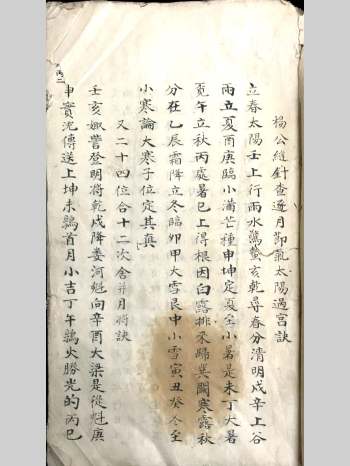 楊公縫針查逐月節氣太陽過宮訣
立春太陽壬上行雨水驚蟄亥乾尋春分清明戌辛上谷
雨立夏酉庚臨小滿芒種申坤定夏至小暑是未丁大暑
覓午立秋丙處暑巳上得根因白露排來歸巽闕寒露秋
分在乙辰霜降立冬臨卯甲大雪艮中小雪寅丑癸冬至
小寒論大寒子位定其真
又二十四位合十二次舍并月將訣
壬亥娵訾登明將乾戌降婁河魁向辛酉大梁是從魁庚
申實沈傳送上坤未鶉首月小吉丁午鶉火勝光的丙巳